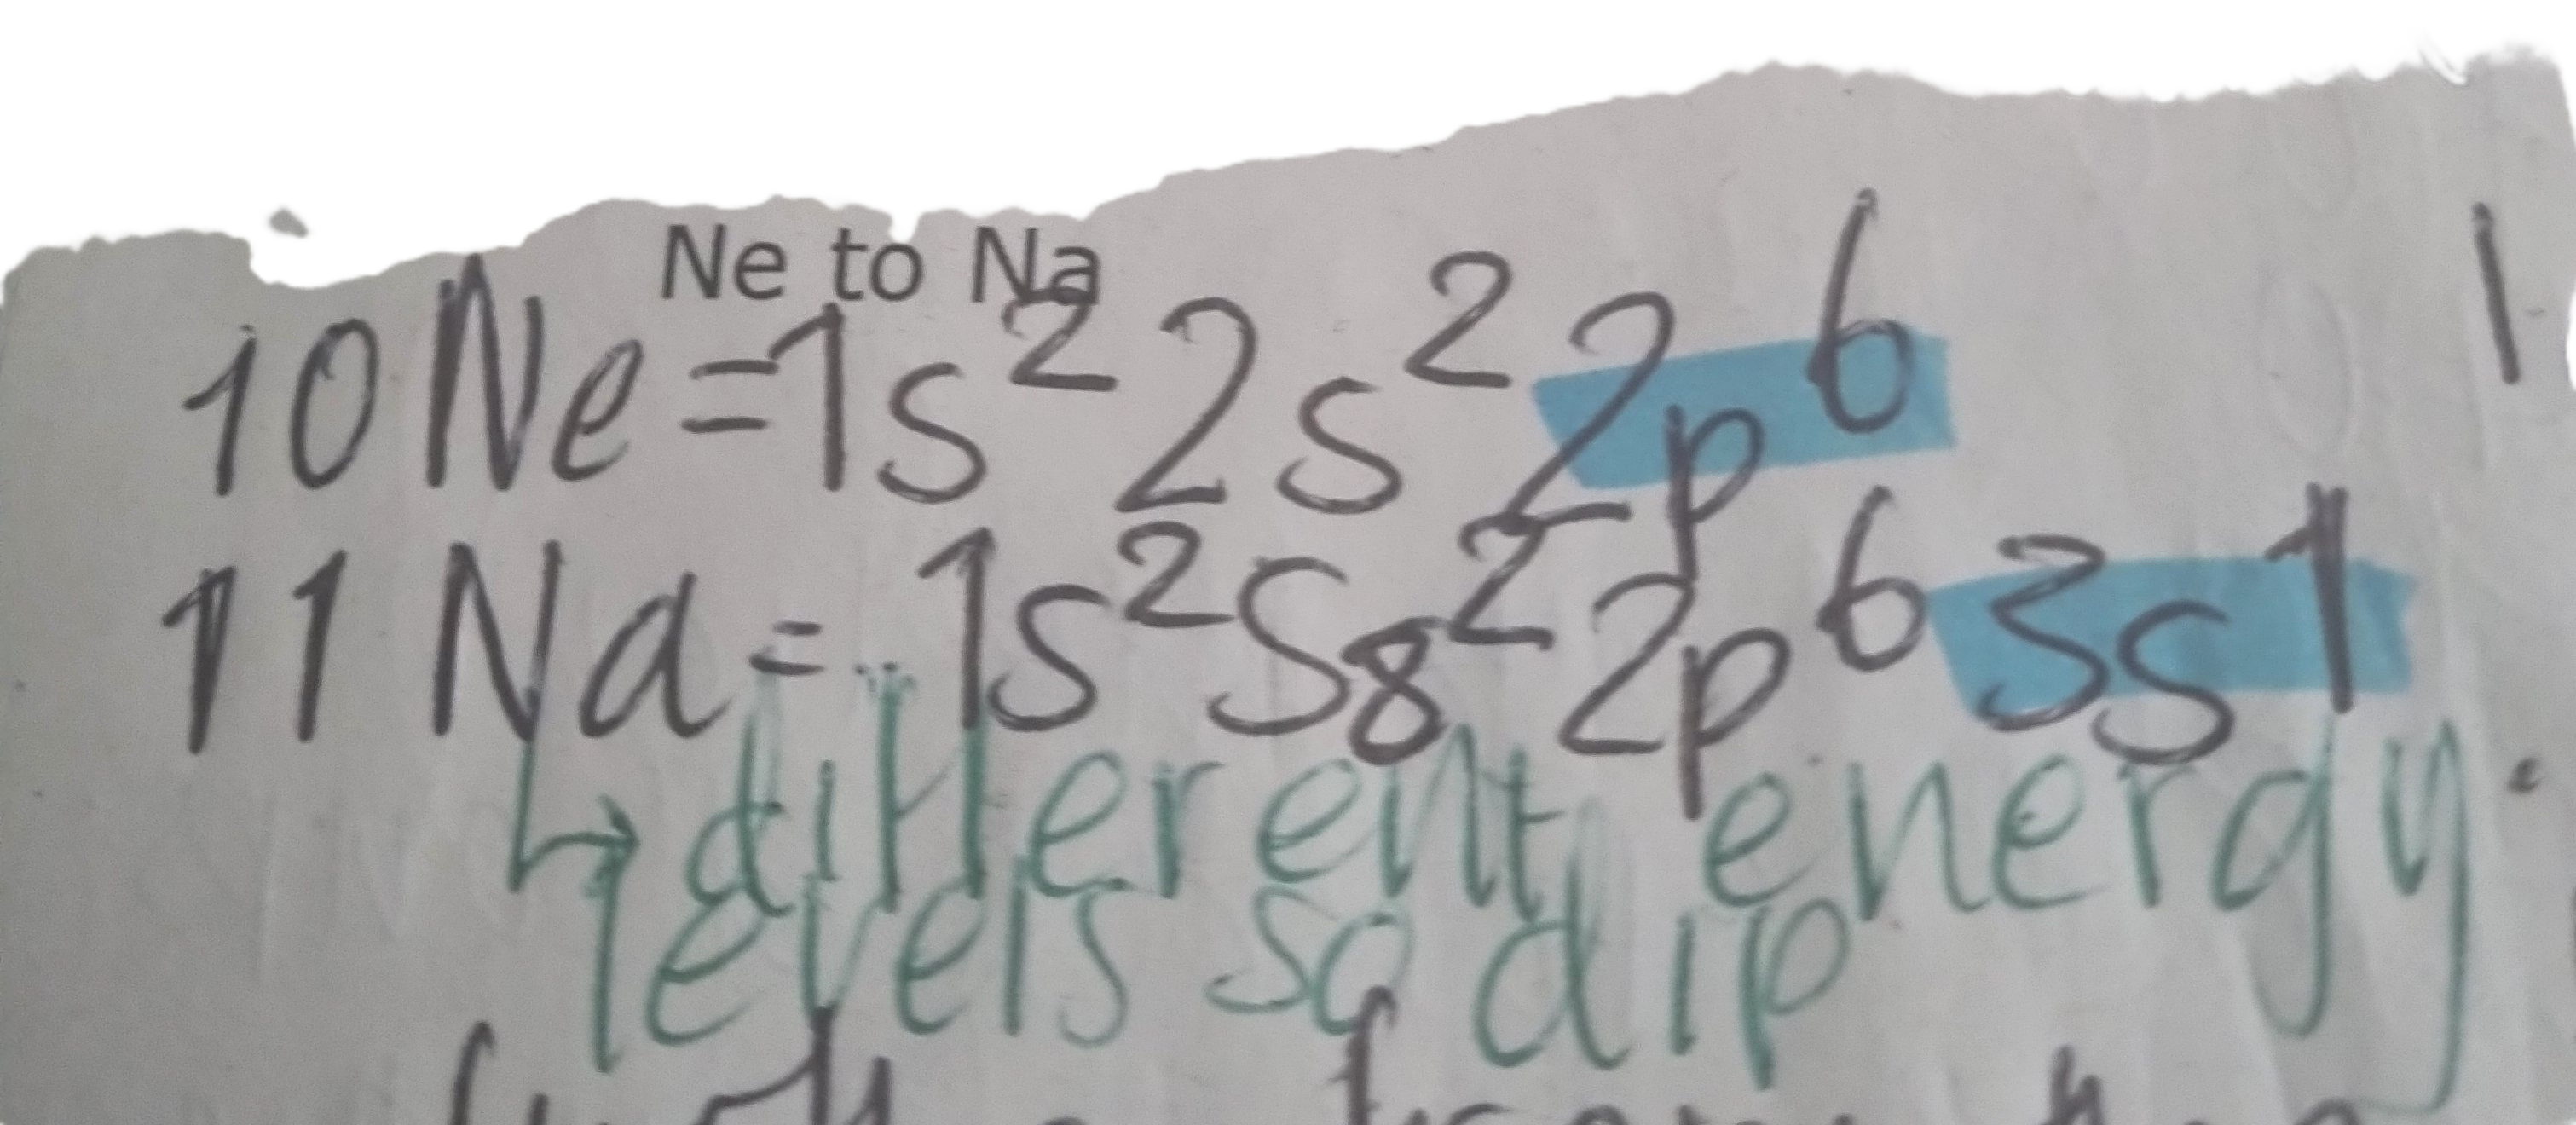 Ne to Na
10 Ne = 1s² 2s² 2p⁶ 1
11 Na = 1s² S8² 2p⁶ 3s¹
↳ different energy
levels so dip